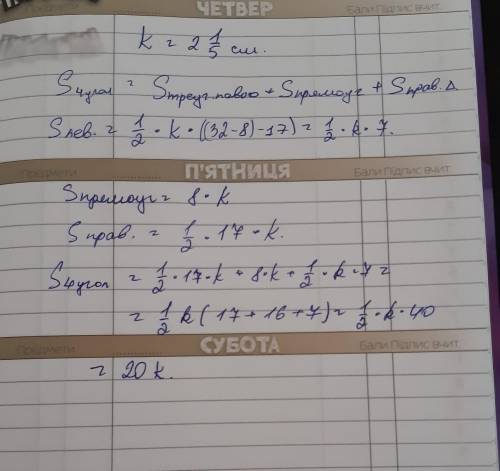 ЧЕТВЕР Бали Підпис вчит.
k = 2 1/5 см.
S4угол = Sтреуг.левого + Sпрямоуг + Sправ. Δ
Sлев. = 1/2 · k · ((32-8)-17) = 1/2 · k · 7.
Предмети П'ЯТНИЦЯ Бали Підпис вчит.
Sпрямоуг = 8 · k
Sправ. = 1/2 · 17 · k.
S4угол = 1/2 · 17 · k + 8 · k + 1/2 · k · 7 =
= 1/2 k (17 + 16 + 7) = 1/2 · k · 40
Предмети СУБОТА Бали Підпис вчит.
= 20 k.